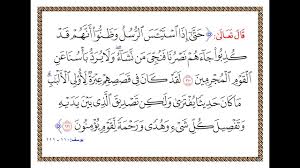 قال تعالى:
﴿ حَتَّىٰٓ إِذَا ٱسْتَيْـَٔسَ ٱلرُّسُلُ وَظَنُّوٓا۟ أَنَّهُمْ قَدْ
كُذِبُوا۟ جَآءَهُمْ نَصْرُنَا فَنُجِّىَ مَن نَّشَآءُ ۖ وَلَا يُرَدُّ بَأْسُنَا عَنِ
ٱلْقَوْمِ ٱلْمُجْرِمِينَ ١١٠ لَقَدْ كَانَ فِى قَصَصِهِمْ عِبْرَةٌ لِّأُو۟لِى ٱلْأَلْبَـٰبِ ۗ
مَا كَانَ حَدِيثًا يُفْتَرَىٰ وَلَـٰكِن تَصْدِيقَ ٱلَّذِى بَيْنَ يَدَيْهِ
وَتَفْصِيلَ كُلِّ شَىْءٍ وَهُدًى وَرَحْمَةً لِّقَوْمٍ يُؤْمِنُونَ ١١١ ﴾
يوسف: ١١٠ - ١١١